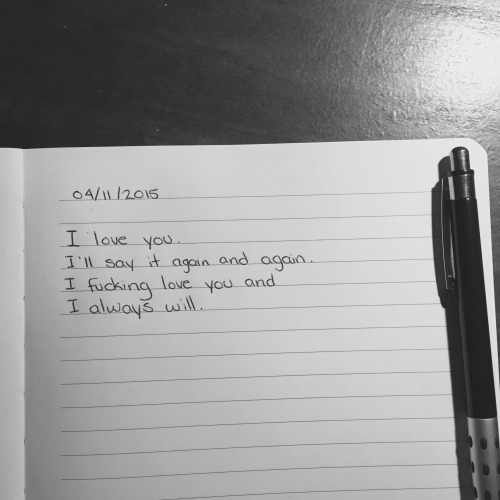 04/11/2015
I love you.
I'll say it again and again.
I fucking love you and
I always will.